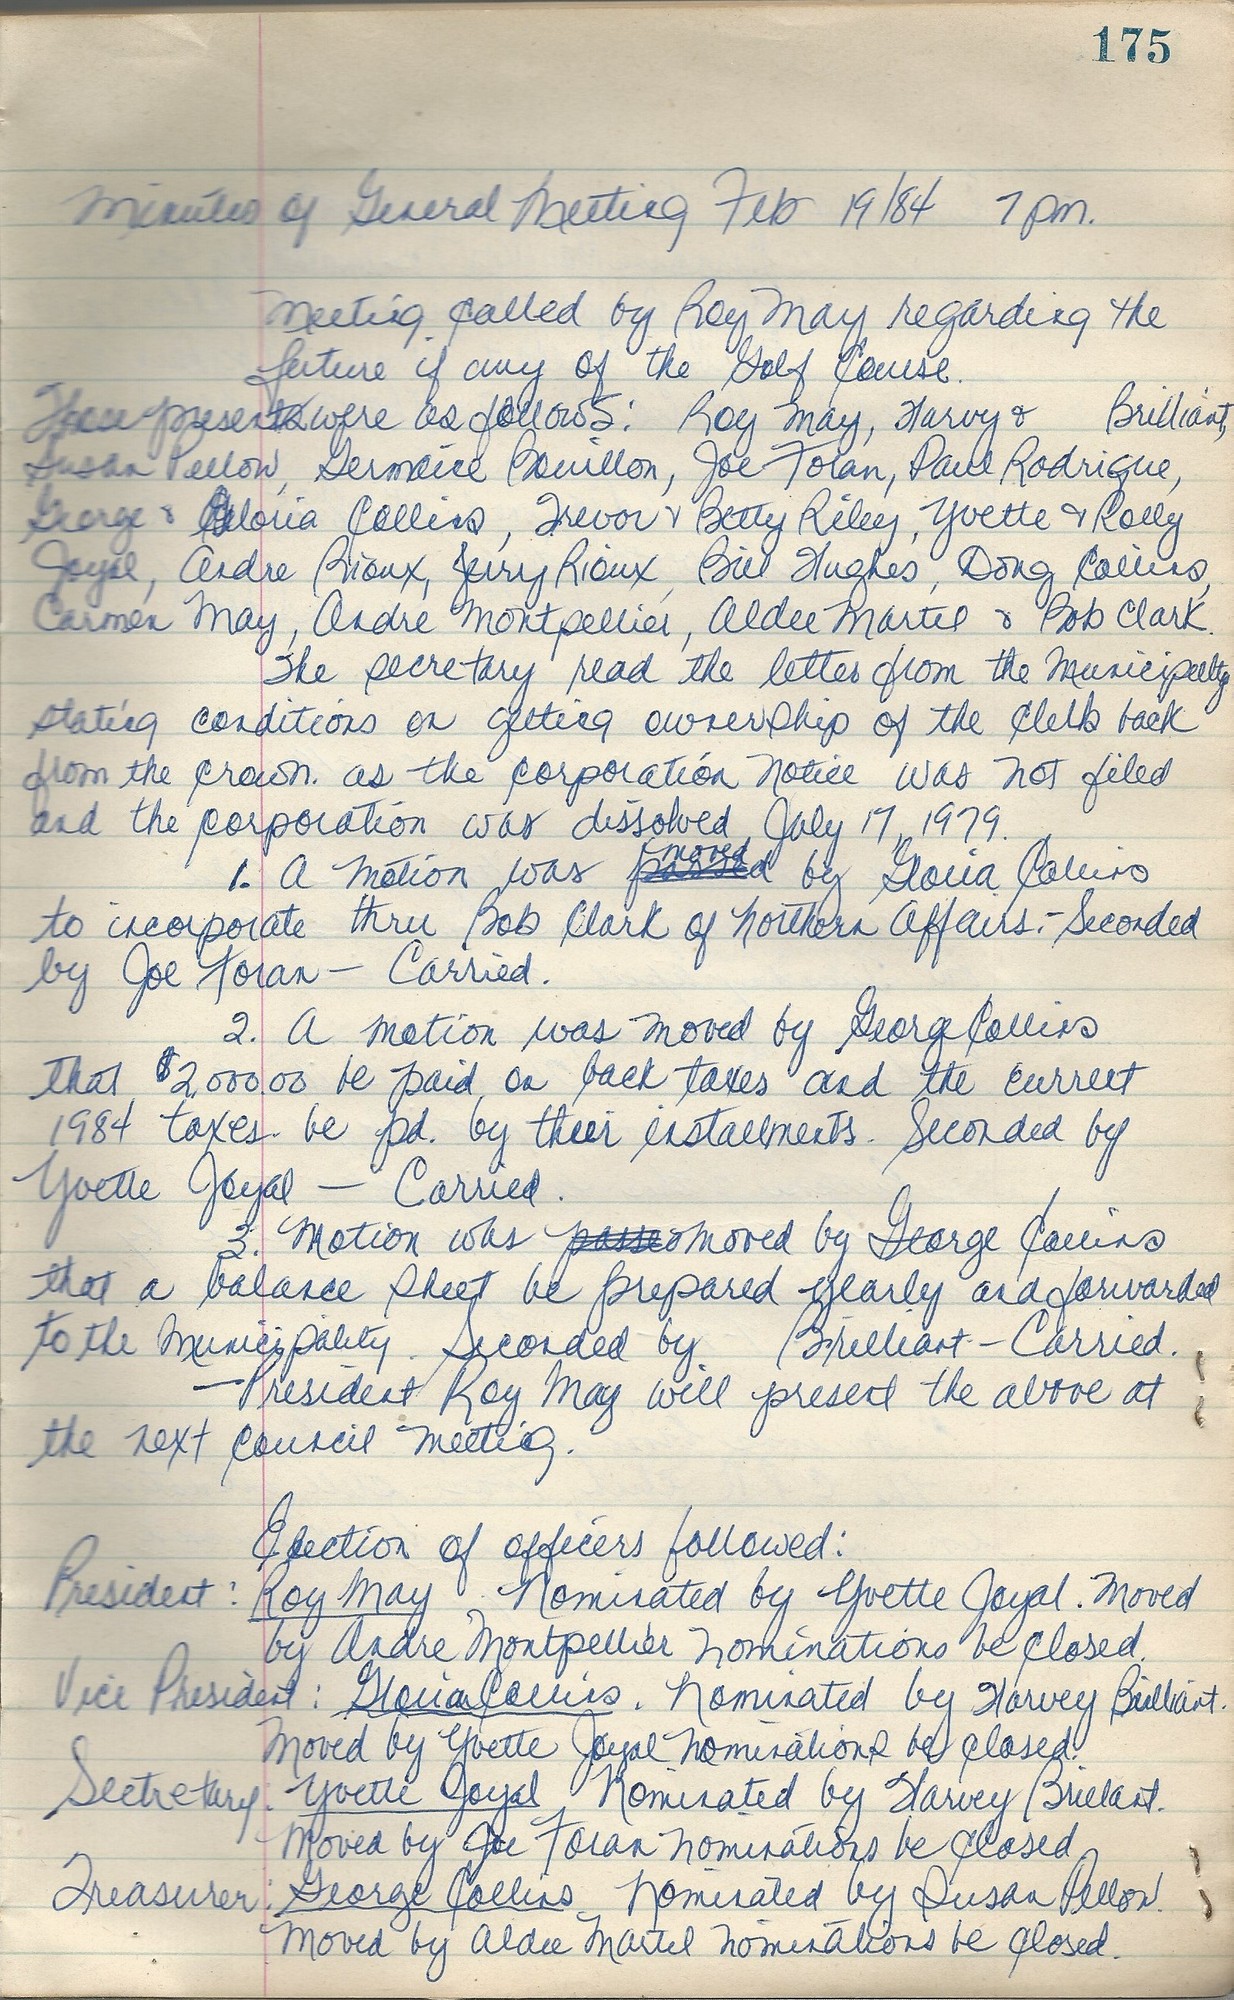 175
Minutes of General Meeting Feb 19/84 7 pm.
Meeting called by Roy May regarding the
future if any of the Golf Course.
Those present were as follows: Roy May, Harvy & Brilliant,
Susan Pellow, Germaice Bouillon, Joe Foran, Paul Rodrigue,
George & Gloria Collins, Trevor & Betty Riley, Yvette & Rolly
Joyal, Andre Rioux, Jerry Rioux, Bill Hughes, Doug Collins,
Carmen May, Andre Montpellier, Aldee Martel & Bob Clark.
The secretary read the letter from the Municipality
stating conditions on getting ownership of the Club back
from the crown. as the corporation notice was not filed
and the corporation was dissolved July 17, 1979.
1. A motion was passed moved by Gloria Collins
to incorporate thru Bob Clark of Northern Affairs. - Seconded
by Joe Foran — Carried.
2. A motion was moved by George Collins
that $2,000.00 be paid on back taxes and the current
1984 taxes be pd. by their installments. Seconded by
Yvette Joyal — Carried.
3. Motion was passed moved by George Collins
that a balance sheet be prepared yearly and forwarded
to the Municipality. Seconded by Brilliant - Carried.
— President Roy May will present the above at
the next council meeting.
Election of officers followed:
President: Roy May. Nominated by Yvette Joyal. Moved
by Andre Montpellier nominations be closed.
Vice President: Gloria Collins. Nominated by Harvey Brilliant.
Moved by Yvette Joyal nominations be closed.
Sectretary: Yvette Joyal Nominated by Harvey Brillant.
Moved by Joe Foran nominations be closed
Treasurer: George Collins Nominated by Susan Pellow.
Moved by Aldee Martel nominations be closed.